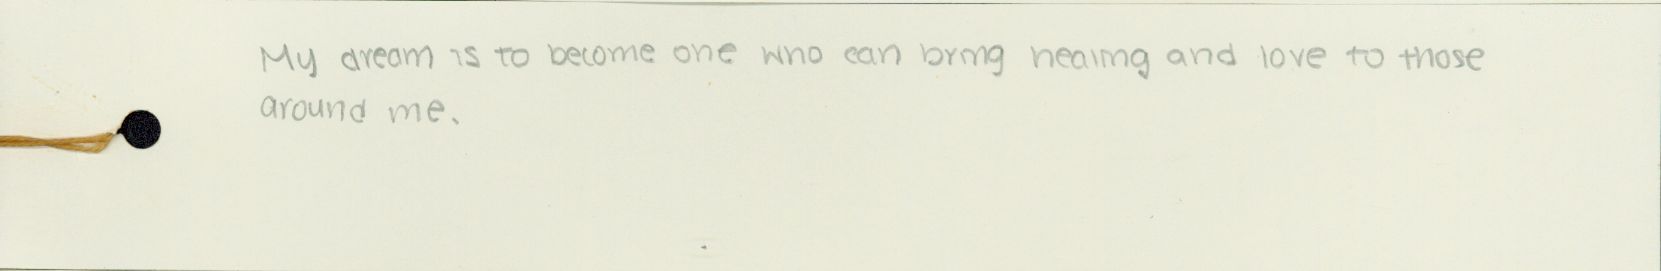 My dream is to become one who can bring healing and love to those
around me.